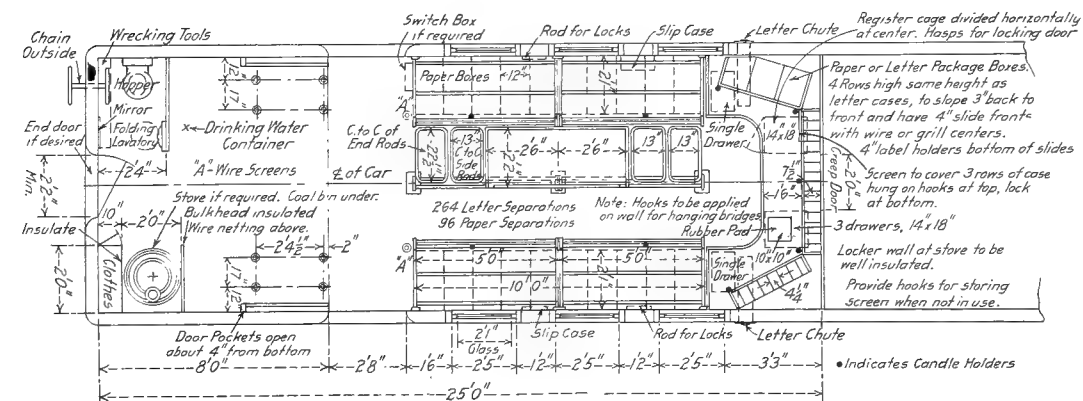 Chain
Outside
Wrecking Tools
Hopper
Mirror
Folding
Lavatory
End door
if desired
2'4"
2'-2"
Min.
Insulate
10"
2'0"
2'-0"
Clothes
12"
17"
Drinking Water
Container
"A"-Wire Screens
Stove if required. Coal bin under.
Bulkhead insulated
Wire netting above.
24½"
2"
17"
12"
Door Pockets open
about 4" from bottom
Switch Box
if required
Rod for Locks
Slip Case
Letter Chute
Paper Boxes
12"
2'1"
"A"
C. to C. of
End Rods
22½"
13"
C to C
Side
Rods
22"
2'6"
2'6"
13"
13"
Single
Drawer
14"x18"
℄ of Car
264 Letter Separations
96 Paper Separations
Note: Hooks to be applied
on wall for hanging bridges
Rubber Pad
7½"
1'6"
2'-0"
Creep Door
10"x10"
"A"
5'0"
5'0"
10'0"
2'1"
Single
Drawer
4¼"
2'1"
Glass
Slip Case
Rod for Locks
Letter Chute
Register cage divided horizontally
at center. Hasps for locking door
Paper or Letter Package Boxes.
4 Rows high same height as
letter cases, to slope 3" back to
front and have 4" slide fronts
with wire or grill centers.
4" label holders bottom of slides
Screen to cover 3 rows of case
hung on hooks at top, lock
at bottom.
3 drawers, 14"x18"
Locker wall at stove to be
well insulated.
Provide hooks for storing
screen when not in use.
•Indicates Candle Holders
8'0"
2'8"
1'6"
2'5"
1'2"
2'5"
1'2"
2'5"
3'3"
25'0"